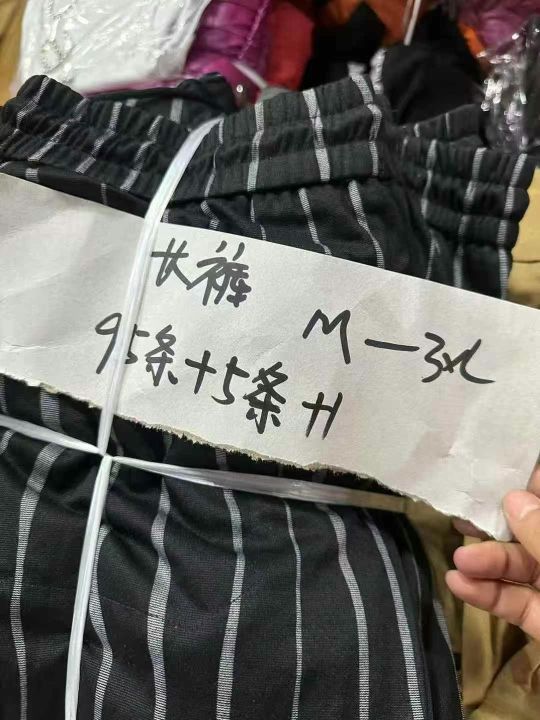 长裤
M—3XL
95条+5条H